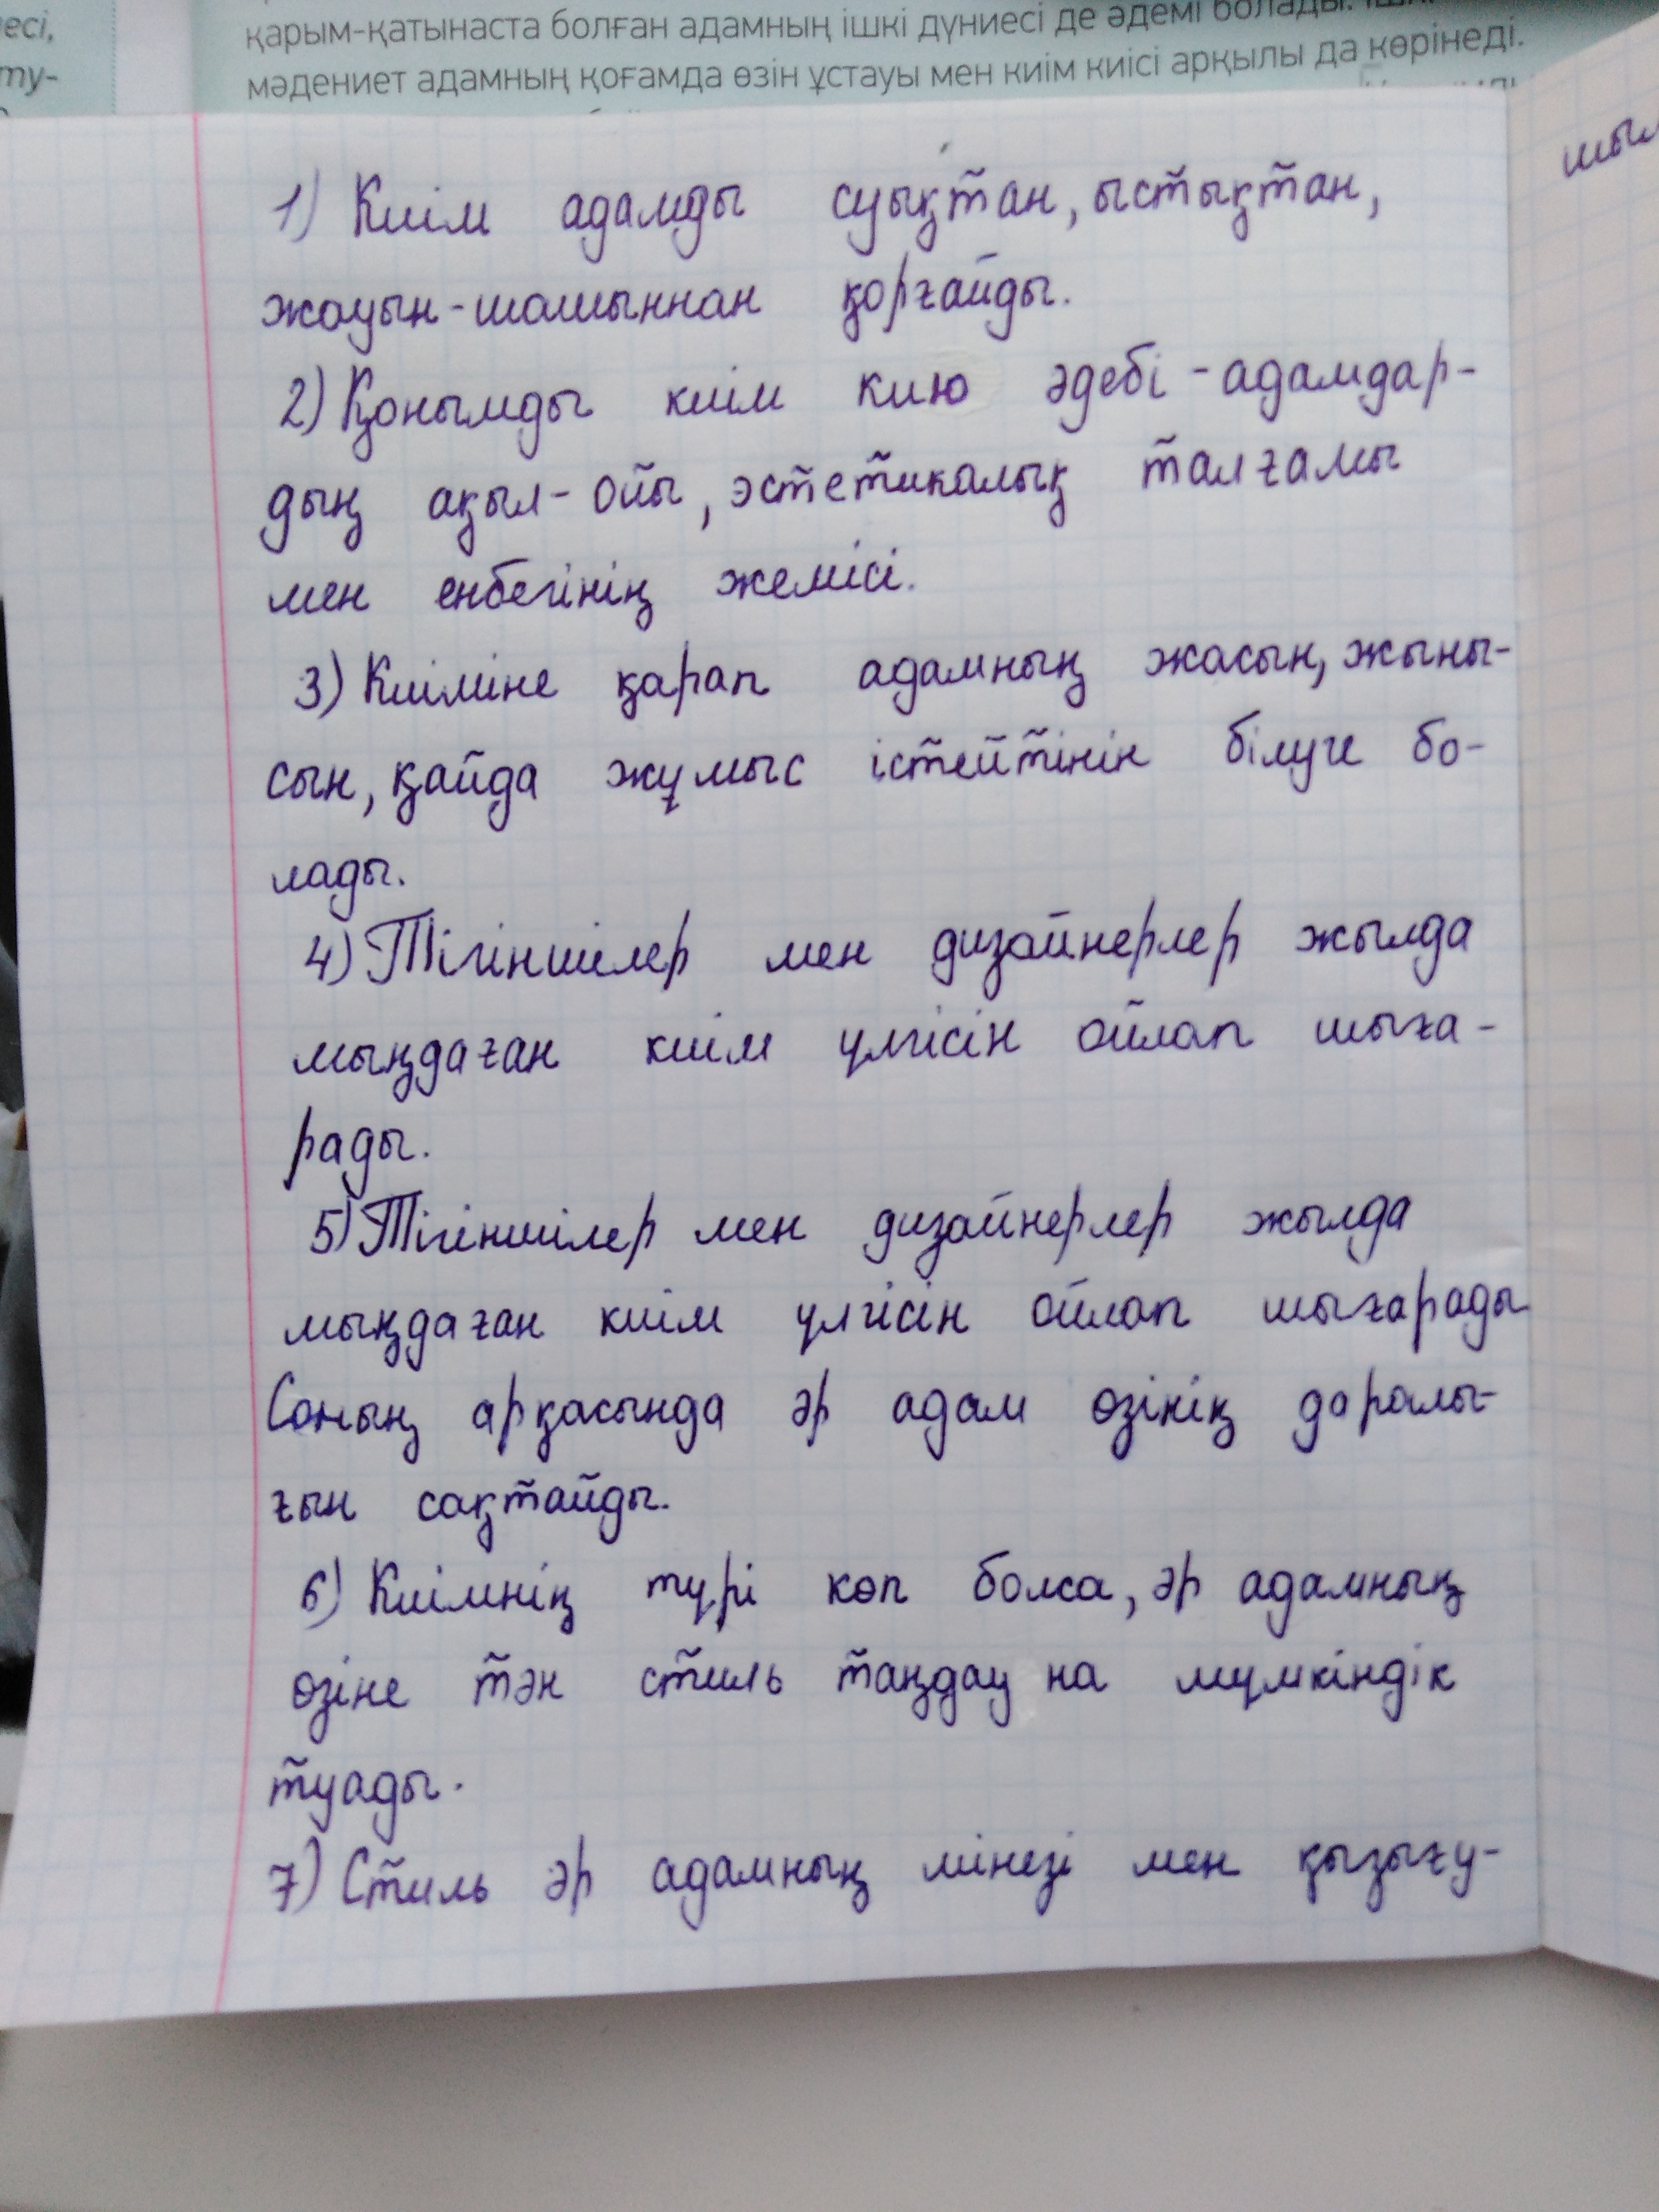 есі,
ту-
қарым-қатынаста болған адамның ішкі дүниесі де әдемі болады.
мәдениет адамның қоғамда өзін ұстауы мен киім киісі арқылы да көрінеді.
1) Киім адамды суықтан, ыстықтан,
жауын-шашыннан қорғайды.
2) Қонымды киім кию әдебі - адамдар-
дың ақыл-ойы, эстетикалық талғамы
мен енбегінің жемісі.
3) Киіміне қарап адамның жасын, жыны-
сын, қайда жұмыс істейтінін білуге бо-
лады.
4) Тігіншілер мен дизайнерлер жылда
мыңдаған киім үлгісін ойлап шыға-
рады.
5) Тігіншілер мен дизайнерлер жылда
мыңдаған киім үлгісін ойлап шығарады
Соның арқасында әр адам өзінің даралы-
ғын сақтайды.
6) Киімнің түрі көп болса, әр адамның
өзіне тән стиль таңдау на мүмкіндік
туады.
7) Стиль әр адамның мінезі мен қызығу-
шыл